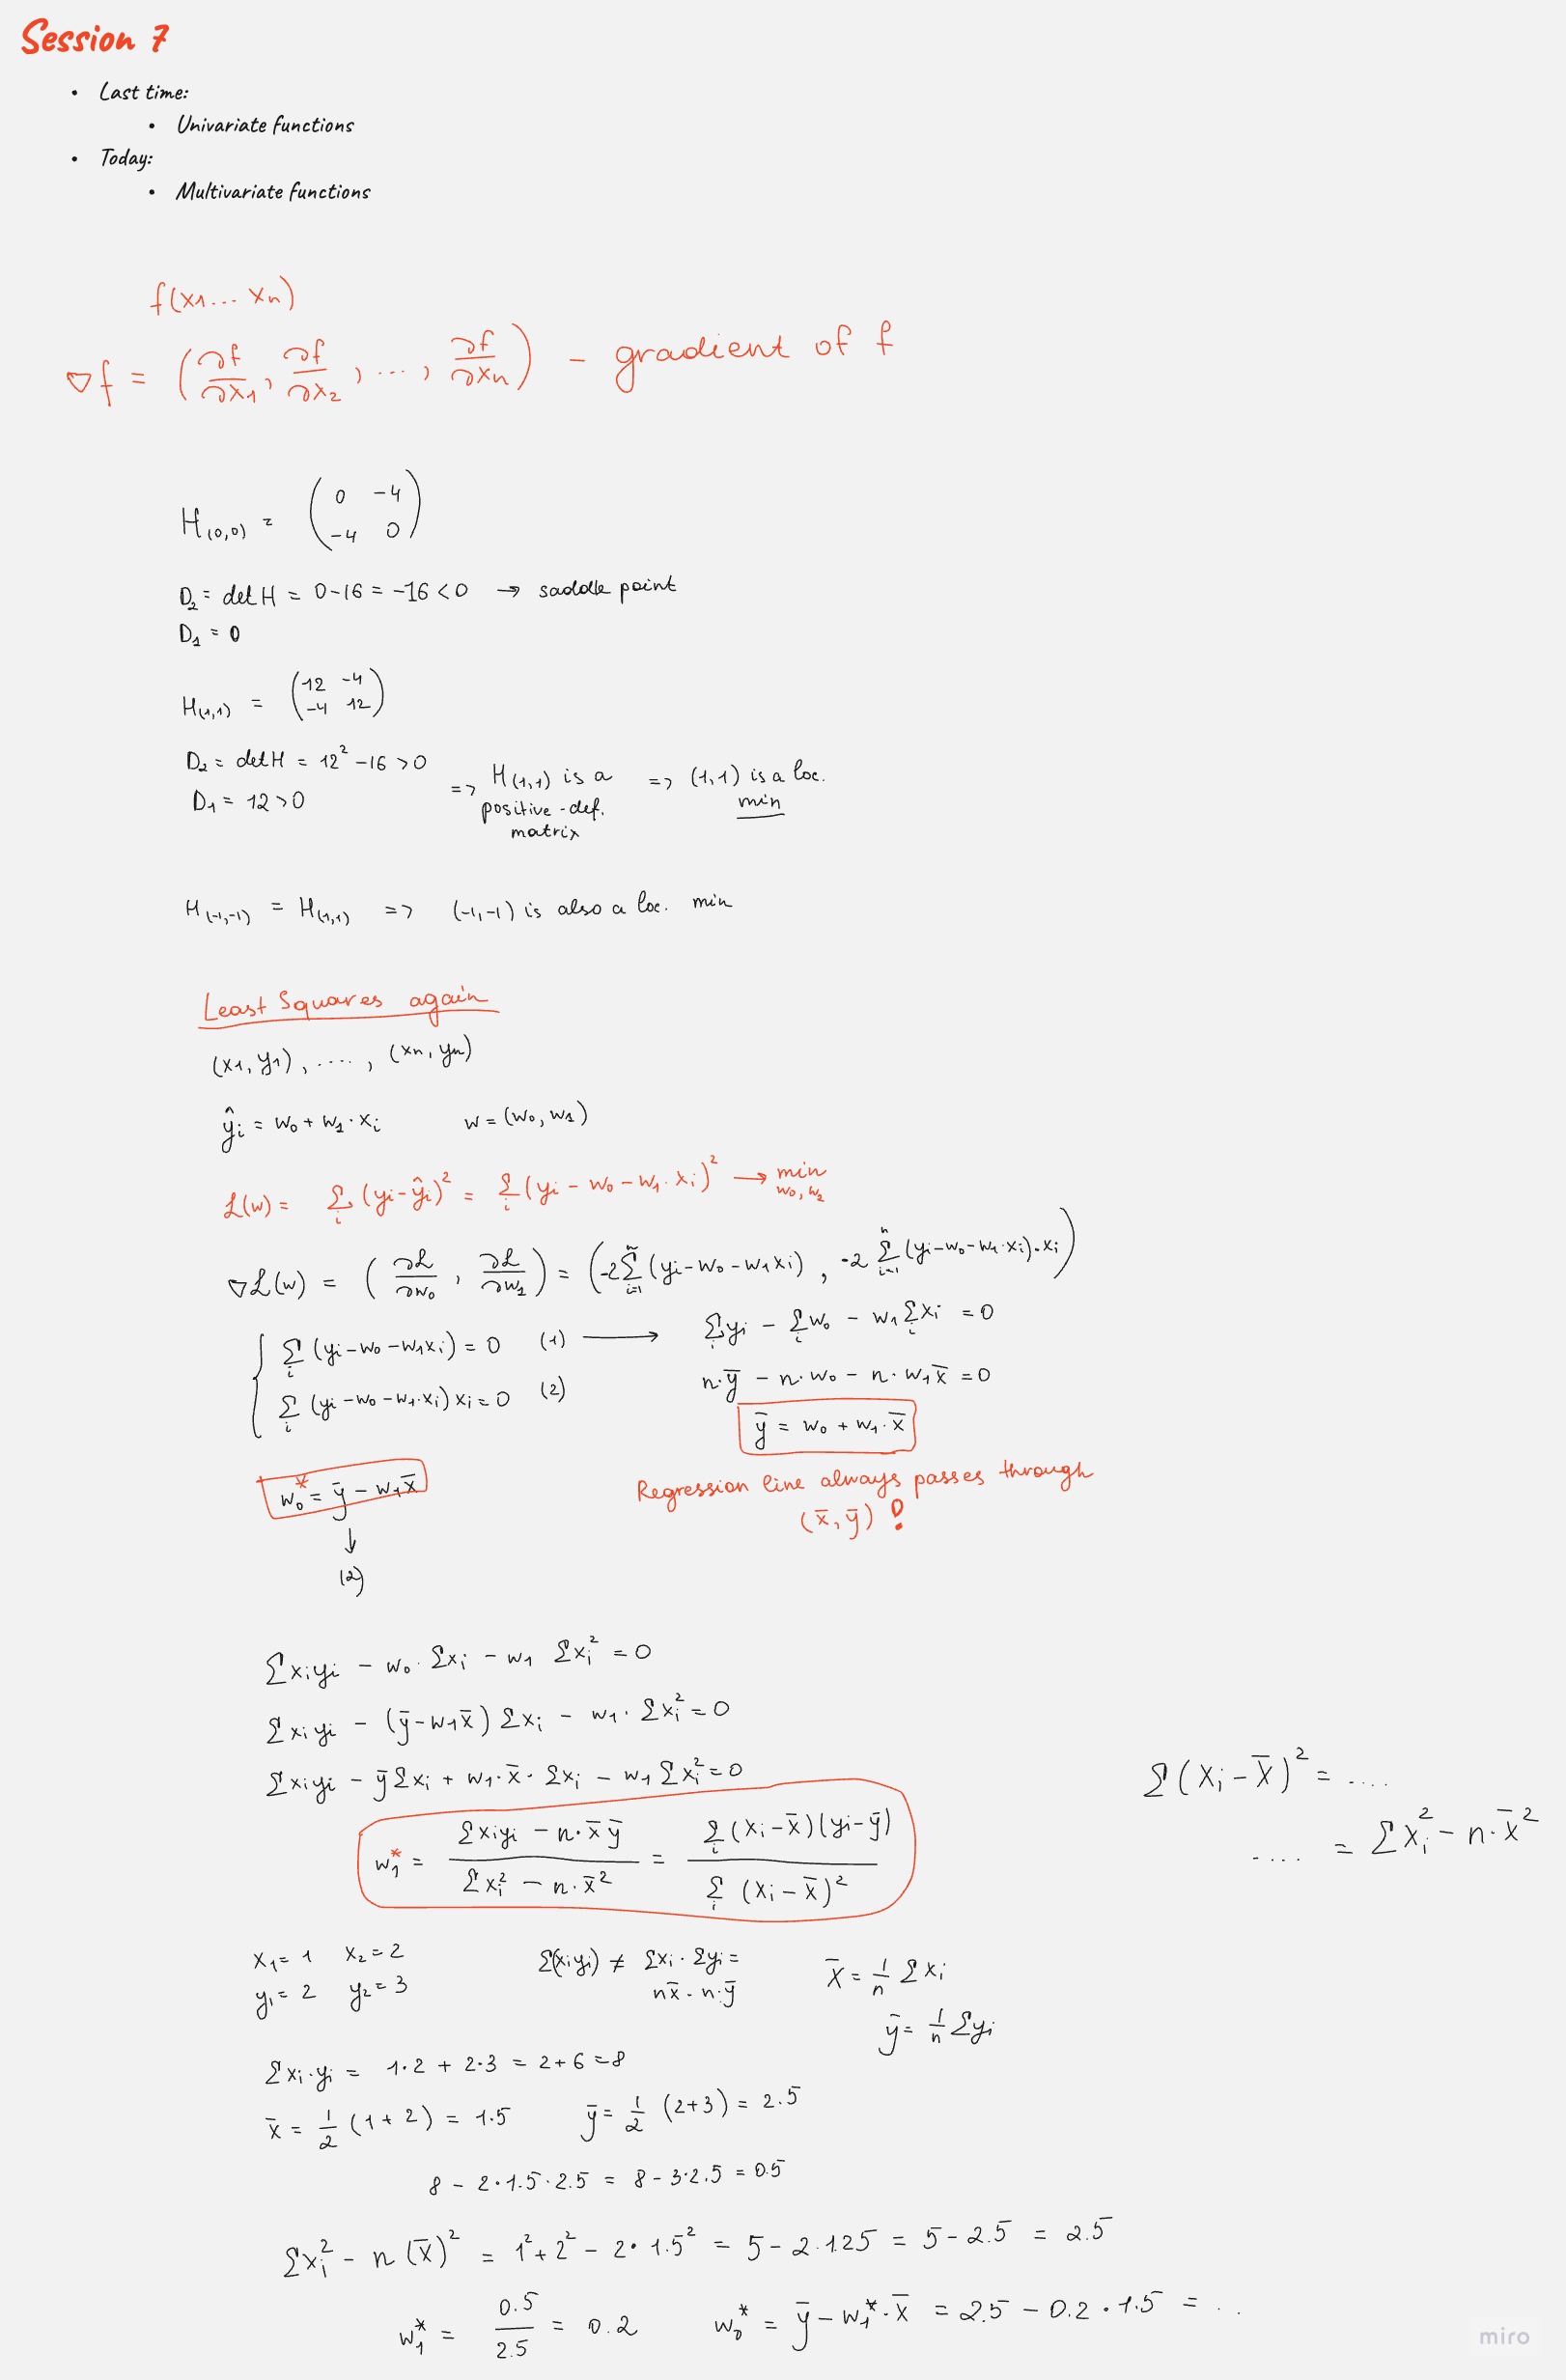 Session 7
• Last time:
• Univariate functions
• Today:
• Multivariate functions
f(x1... xn)
∇f = (∂f/∂x1, ∂f/∂x2, ..., ∂f/∂xn) - gradient of f
H(0,0) = (0 -4
-4 0)
D2 = det H = 0-16 = -16 < 0 → saddle point
D1 = 0
H(1,1) = (12 -4
-4 12)
D2 = det H = 12² - 16 > 0
D1 = 12 > 0
=> H(1,1) is a positive-def. matrix => (1,1) is a loc. min
H(-1,-1) = H(1,1) => (-1,-1) is also a loc. min
Least Squares again
(x1, y1), ...., (xn, yn)
ŷi = w0 + w1·xi w = (w0, w1)
ℒ(w) = Σi (yi - ŷi)² = Σi (yi - w0 - w1·xi)² → min w0, w1
∇ℒ(w) = (∂ℒ/∂w0, ∂ℒ/∂w1) = (-2 Σi=1^n (yi - w0 - w1xi), -2 Σi=1^n (yi - w0 - w1·xi)·xi)
{ Σi (yi - w0 - w1xi) = 0 (1) → Σi yi - Σi w0 - w1 Σi xi = 0
Σi (yi - w0 - w1·xi) xi = 0 (2) n·ȳ - n·w0 - n·w1x̄ = 0
ȳ = w0 + w1·x̄
w0* = ȳ - w1x̄
Regression line always passes through
(x̄, ȳ) !
↓
(2)
Σxiyi - w0·Σxi - w1 Σxi² = 0
Σxiyi - (ȳ - w1x̄) Σxi - w1·Σxi² = 0
Σxiyi - ȳΣxi + w1·x̄·Σxi - w1Σxi² = 0
Σ(xi - x̄)² = ....
.... = Σxi² - n·x̄²
w1* = (Σxiyi - n·x̄ȳ)/(Σxi² - n·x̄²) = Σi(xi - x̄)(yi - ȳ)/Σi (xi - x̄)²
x1 = 1 x2 = 2
y1 = 2 y2 = 3
Σ(xiyi) ≠ Σxi·Σyi =
nx̄·n·ȳ
x̄ = 1/n Σxi
ȳ = 1/n Σyi
Σxi·yi = 1·2 + 2·3 = 2+6 = 8
x̄ = 1/2 (1+2) = 1.5 ȳ = 1/2 (2+3) = 2.5
8 - 2·1.5·2.5 = 8 - 3·2.5 = 0.5
Σxi² - n(x̄)² = 1² + 2² - 2·1.5² = 5 - 2·1.25 = 5 - 2.5 = 2.5
w1* = 0.5/2.5 = 0.2 w0* = ȳ - w1*·x̄ = 2.5 - 0.2·1.5 = ...
miro